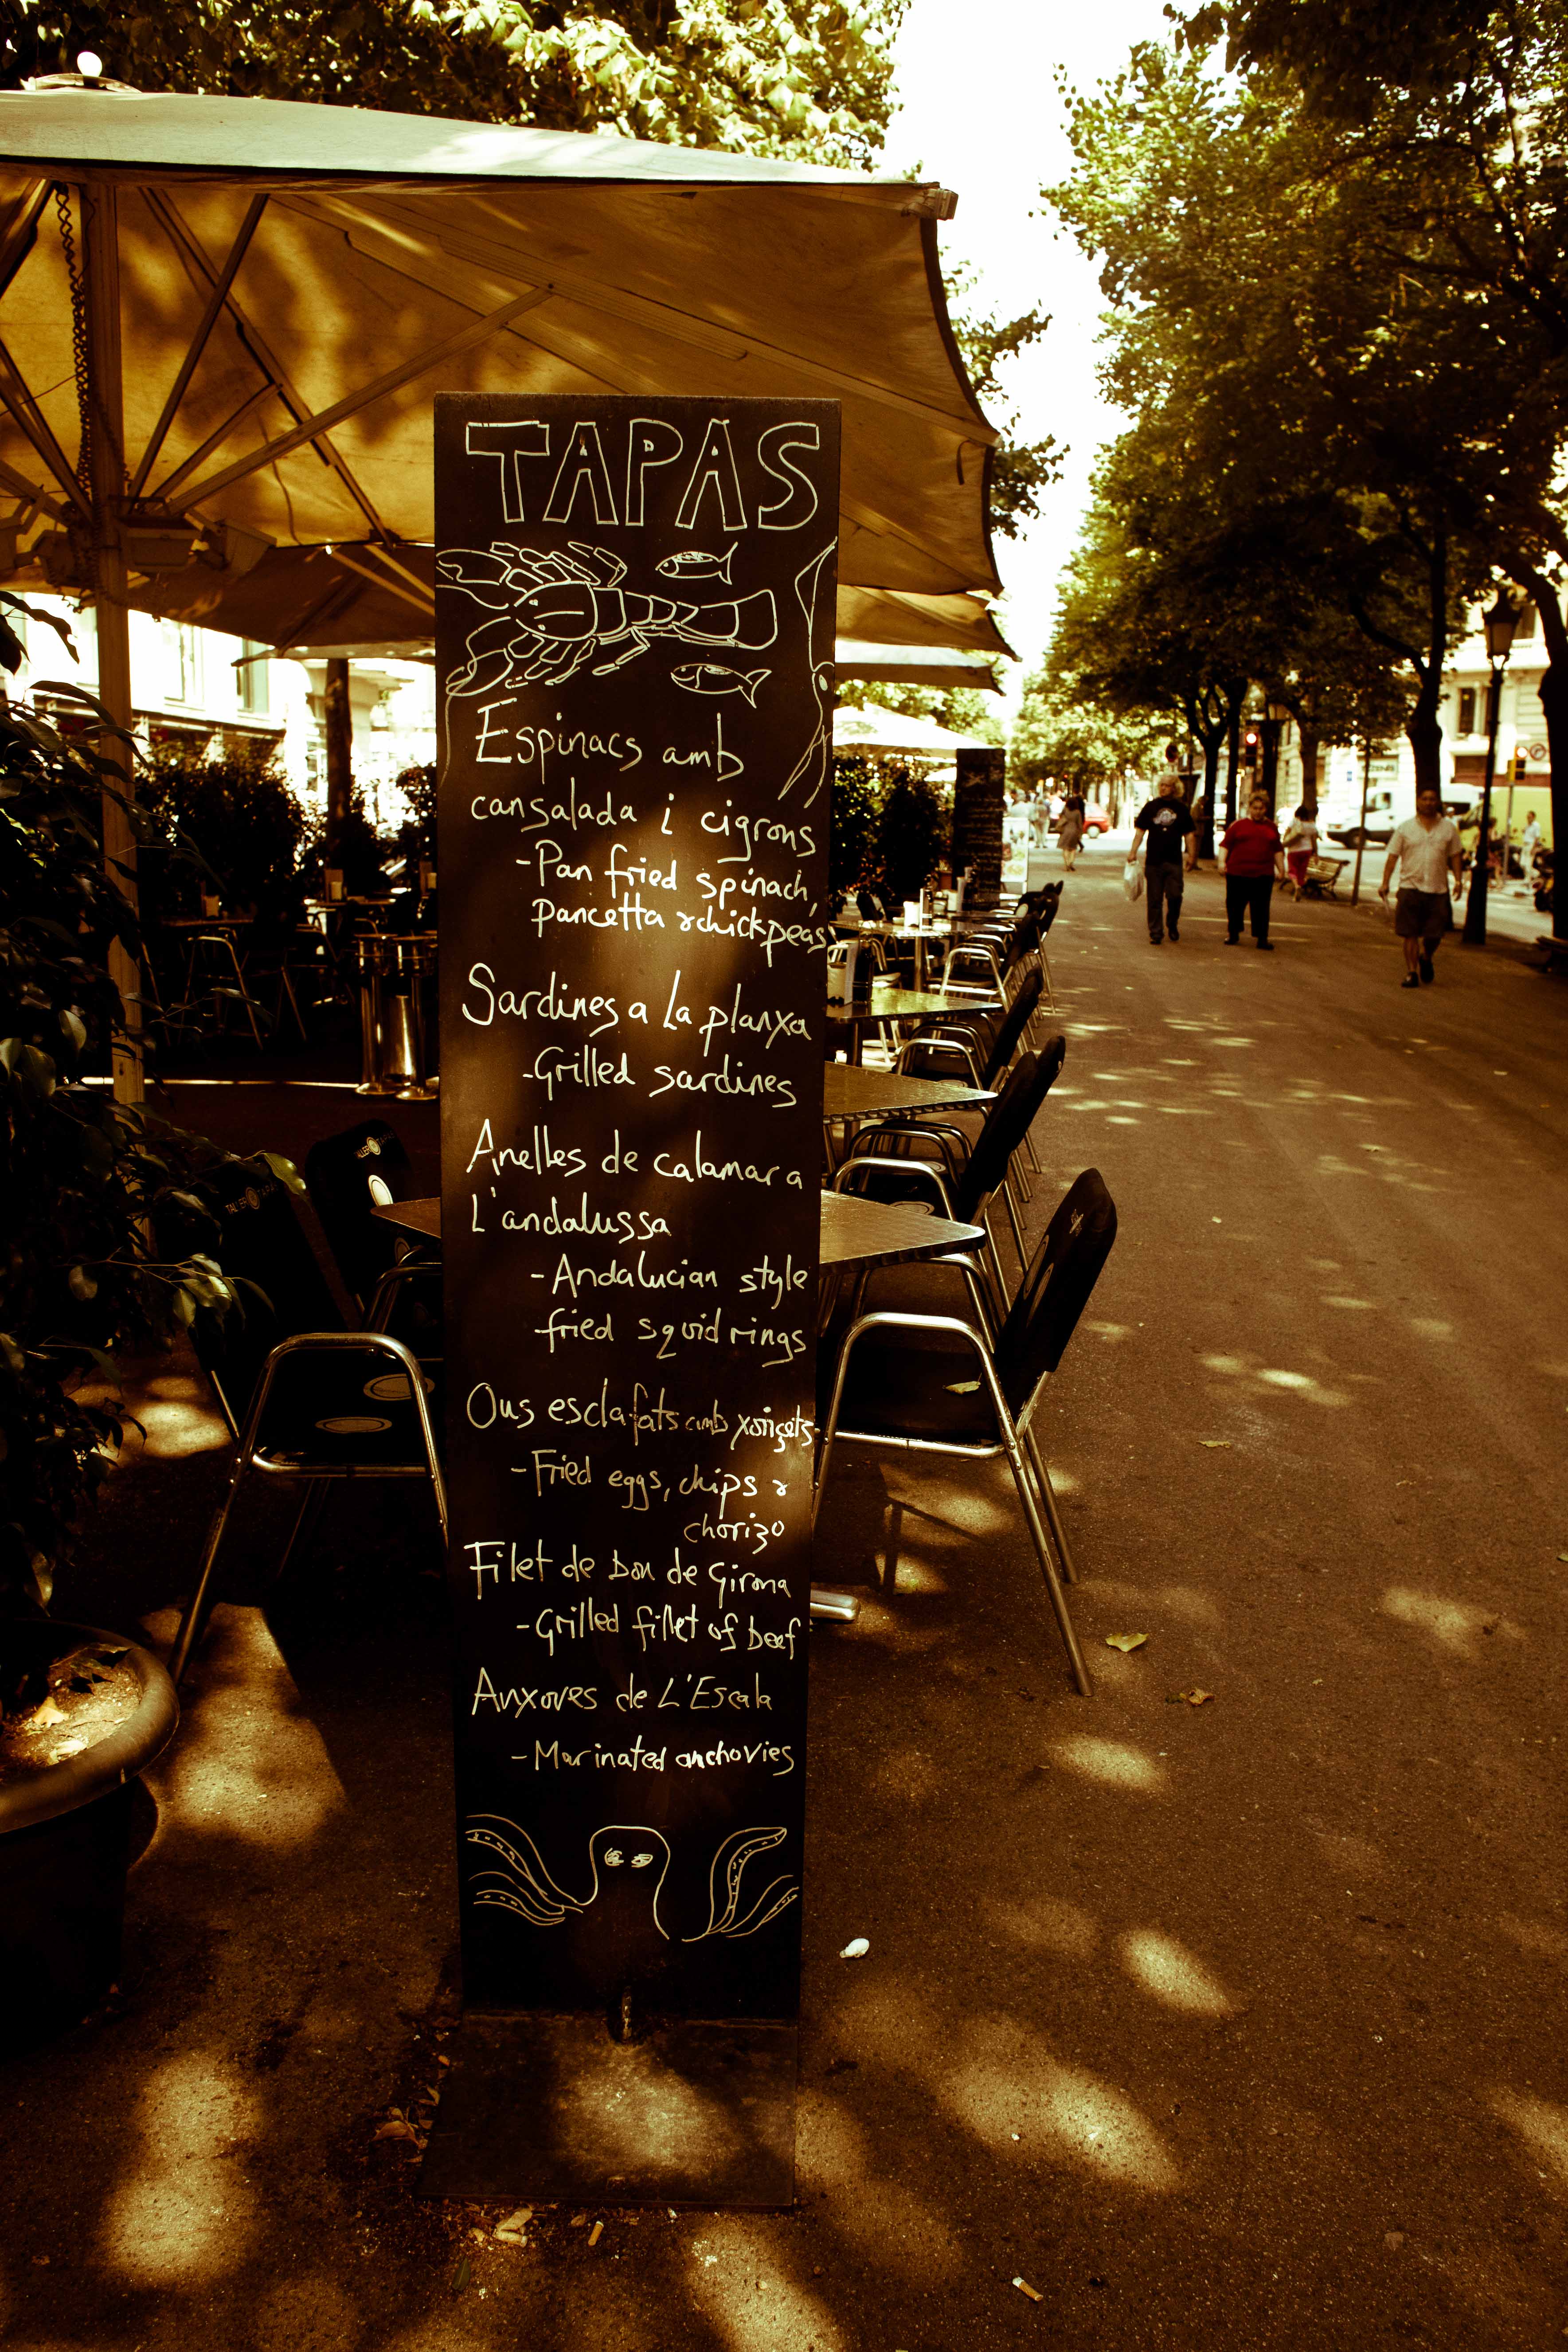 TAPAS
Espinacs amb
cansalada i cigrons
-Pan fried spinach,
pancetta & chickpeas
Sardines a La planxa
-Grilled sardines
Anelles de calamar a
L'andalussa
-Andalucian style
fried squid rings
Ous esclafats amb xoriçets
-Fried eggs, chips &
chorizo
Filet de bou de Girona
-Grilled fillet of beef
Anxoves de L'Escala
-Marinated anchovies